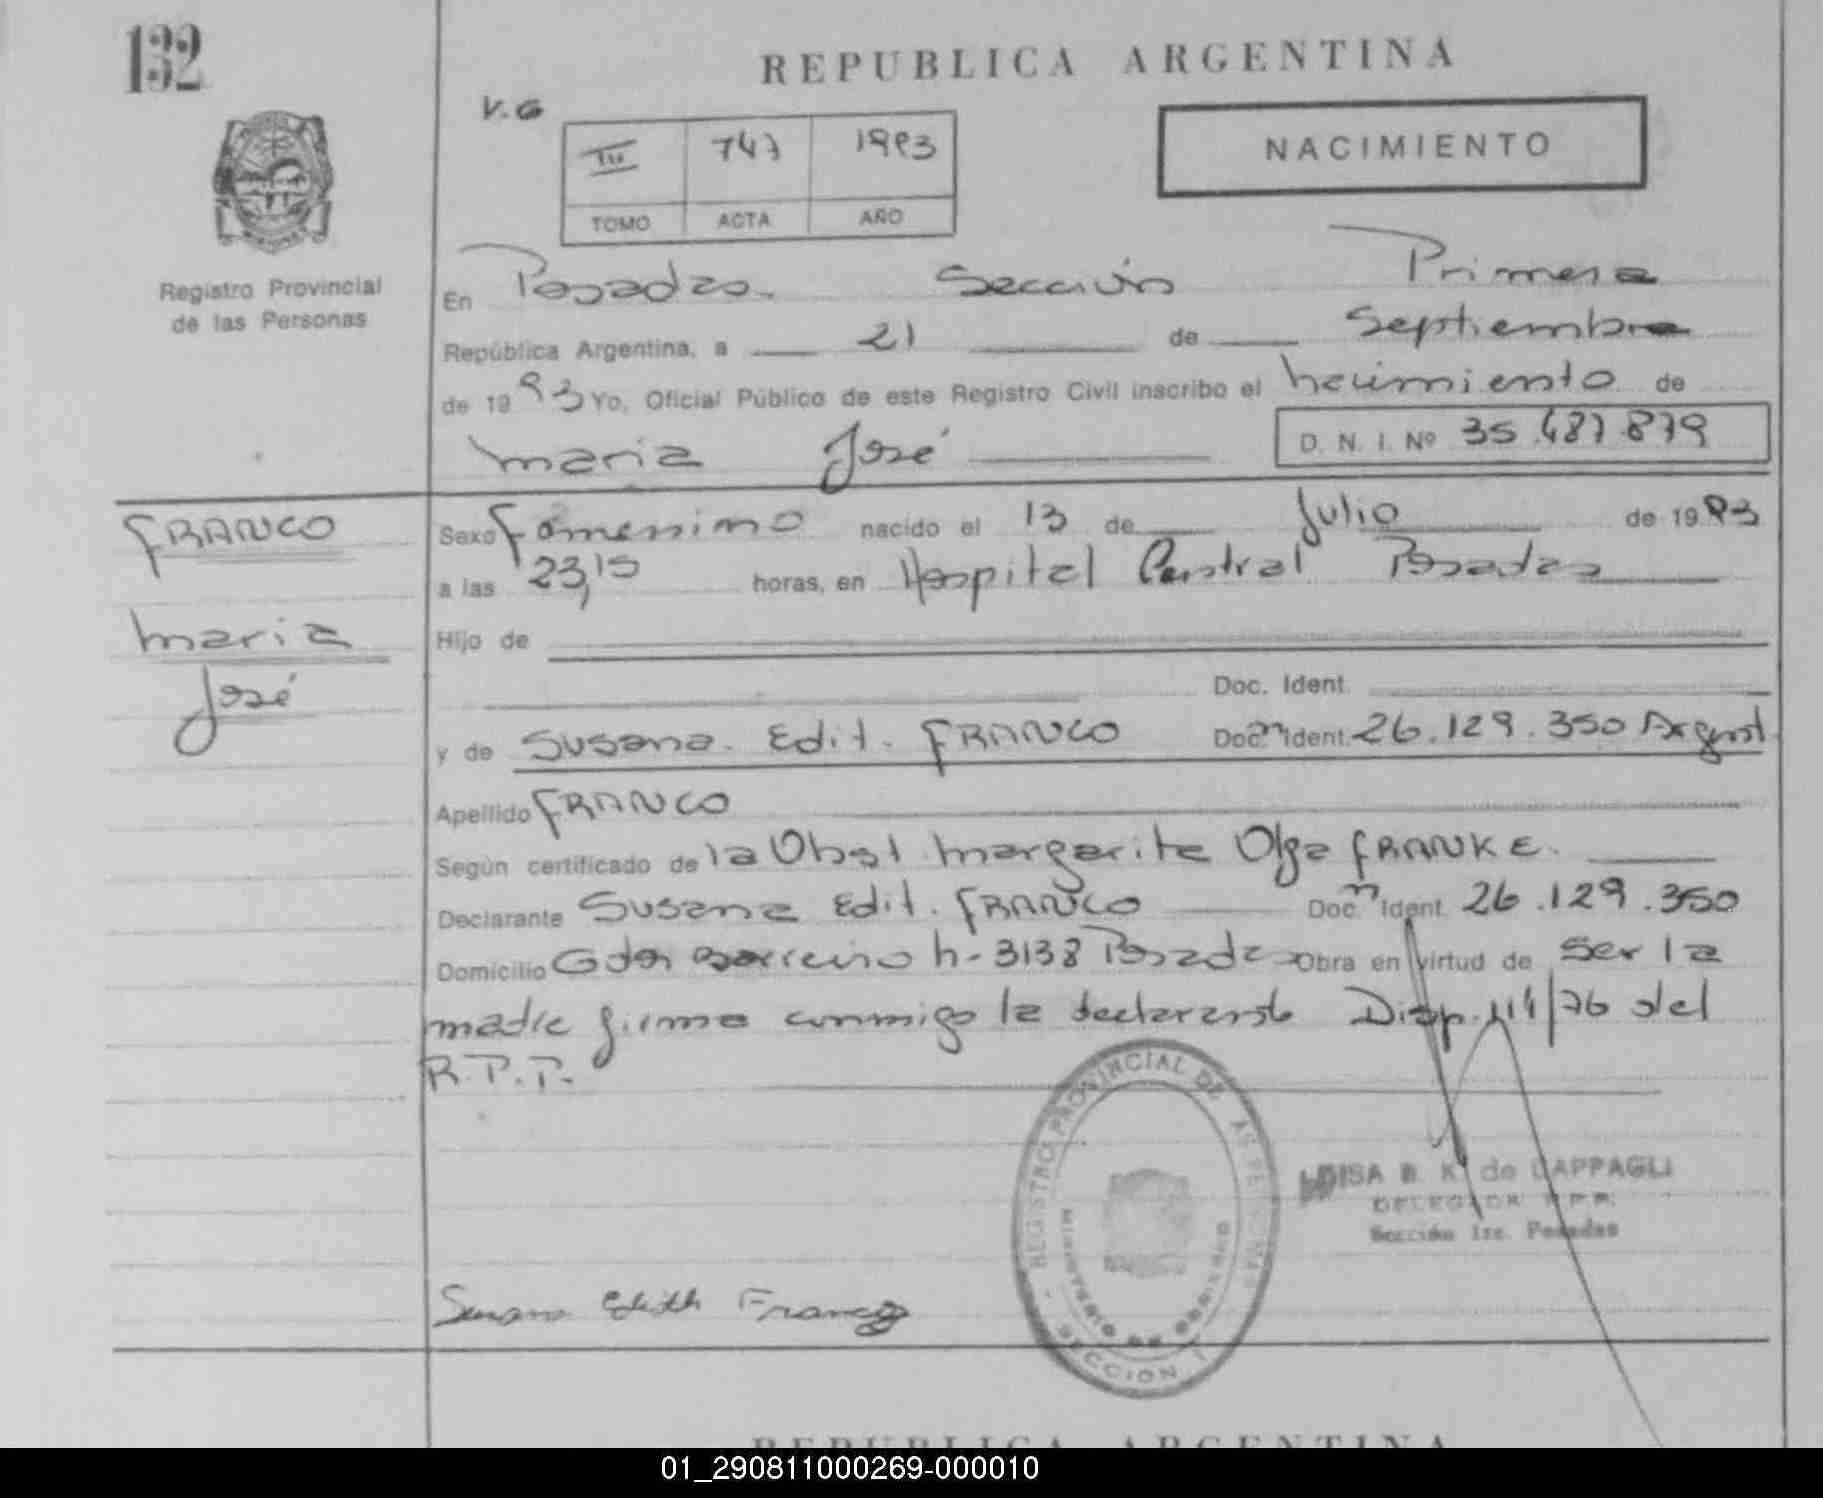 132
REPUBLICA ARGENTINA
V.G
III 747 1993
TOMO ACTA AÑO
NACIMIENTO
Registro Provincial
de las Personas
En Posadas Sección Primera
República Argentina, a 21 de Septiembre
de 1993 Yo, Oficial Público de este Registro Civil inscribo el nacimiento de
maria José D. N. I. Nº 35.487.879
FRANCO
maria
José
Sexo femenino nacido el 13 de Julio de 1993
a las 23,15 horas, en Hospital Central Posadas
Hijo de
Doc. Ident.
y de Susana Edit. FRANCO Doc. Ident. 26.129.350 Argent
Apellido FRANCO
Según certificado de la Obst margarita Olga FRANKE.
Declarante Susana Edit. FRANCO Doc. Ident. 26.129.350
Domicilio Gdor Barreiro h-3138 Posadas Obra en virtud de ser la
madre firma conmigo la declarante Disp. 114/76 del
R.P.P.
REGISTRO PROVINCIAL DE LAS PERSONAS
MINISTERIO DE GOBIERNO
SECCION 1
LUISA B. K. de CAPPAGLI
DELEGADA R.P.P.
Sección 1ra. Posadas
Susana Edith Franco
REPUBLICA ARGENTINA
01_290811000269-000010